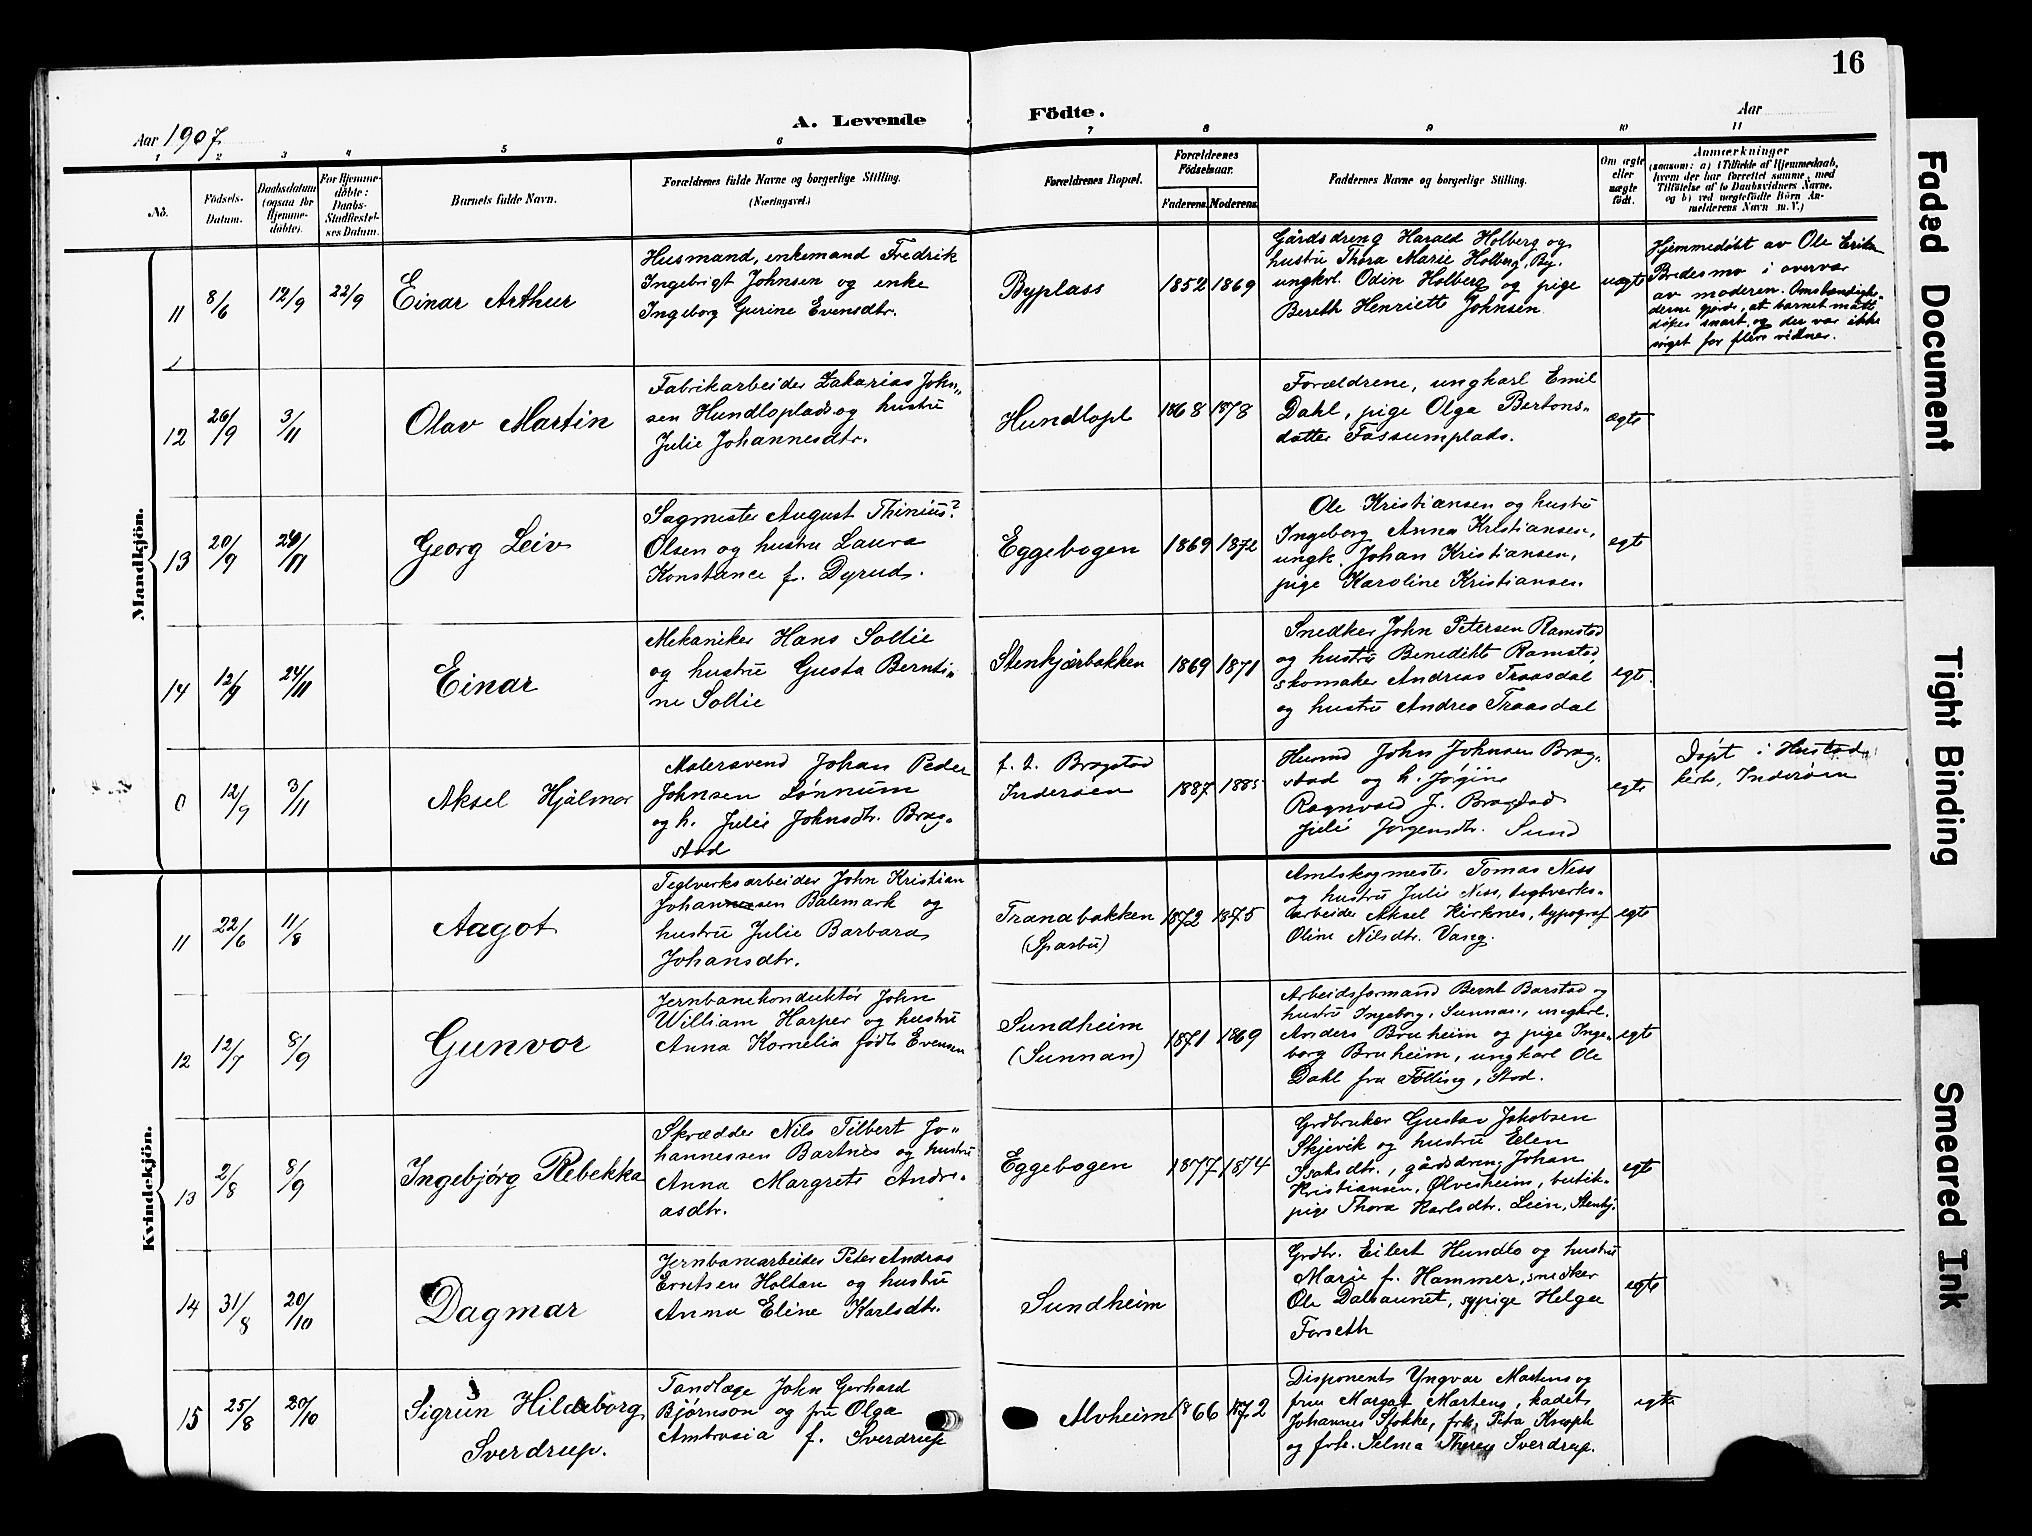 16
A. Levende Födte.
Aar 1907
Aar
1 2 3 4 5 6 7 8 9 10 11
No.
Födsels-
Datum.
Daabsdatum
(ogsaa for
Hjemme-
døbte).
For Hjemme-
døbte:
Daabs-
Stadfæstel-
ses Datum.
Barnets fulde Navn.
Forældrenes fulde Navne og borgerlige Stilling.
(Næringsvei.)
Forældrenes Bopæl.
Forældrenes
Fødselsaar.
Faderens. Moderens.
Faddernes Navne og borgerlige Stilling.
Om ægte
eller
uægte
født.
Anmærkninger
(saasom: a) i Tilfælde af Hjemmedaab,
hvem der har forrettet samme, med
Tilføielse af to Daabsvidners Navne,
og b) ved uægtefødte Børn An-
melderens Navn m. V.)
Mandkjön.
11 8/6 12/9 22/9 Einar Arthur
Husmand, enkemand Fredrik
Ingebrigt Johnsen og enke
Ingeborg Gurine Evensdtr.
Byplass 1852 1869
Gårdsdreng Harald Holberg og
hustru Thora Marie Holberg, By.
ungkrl. Odin Holberg og pige
Bereth Henriette Johnsen
uegte
Hjemmedøbt av Ole Eriksen
Bredesmo i overvær
av moderen. Omstændighe-
derne gjorde, at barnet måtte
døpes snart, og der var ikke
søget for flere vidner.
12 26/9 3/11 Olav Martin
Fabrikarbeider Zakarias John-
sen Hundloplads og hustru
Julie Johannesdtr.
Hundlopl 1868 1878
Forældrene, ungkarl Emil
Dahl, pige Olga Bertons-
datter Fossumplads.
ægte
13 20/9 /11 Georg Leiv
Sagmester August Thinius?
Olsen og hustru Laura
Konstance f. Dyrud.
Eggebogen 1869 1872
Ole Kristiansen og hustru
Ingeborg Anna Kristiansen,
ungk. Johan Kristiansen,
pige Karoline Kristiansen.
egte
14 12/9 24/11 Einar
Mekaniker Hans Sollie
og hustru Gusta Bernti-
ne Sollie
Stenkjærbakken 1869 1871
Snedker John Petersen Ramstad
og hustru Benedikte Ramstad,
skomaker Andreas Traasdal
og hustru Andrea Traasdal
egte.
0 12/9 3/11 Aksel Hjalmar
Malersvend Johan Peder
Johnsen Lønnum
og h. Julie Johnsdtr. Brag-
stad
f. t. Bragstad
Inderøen 1887 1885
Husmd John Johnsen Brag-
stad og h. Jørgine
Ragnvald J. Bragstad
Julie Jørgensdtr. Sund
egte
Døpt i Hustad
kirke, Inderøen
Kvindekjön.
11 22/6 11/8 Aagot
Teglverksarbeider John Kristian
Johannessen Balemark og
hustru Julie Barbara
Johansdtr.
Tranabakken
(Sparbu) 1872 1875
Amtskogmester Tomas Ness
og hustru Julie Ness, teglverks-
arbeider Aksel Kirknes, typograf
Oline Nilsdtr. Vang.
egte
12 12/7 8/9 Gunvor
Jernbanekonduktør John
William Harper og hustru
Anna Kornelia født Evensen
Sundheim
(Sunnan) 1871 1869
Arbeidsformand Bernt Barstad og
hustru Ingeborg, Sunnan, ungkrl.
Anders Bruheim og pige Inge-
borg Bruheim, ungkarl Ole
Dahl fra Følling, Stod.
egte
13 2/8 8/9 Ingebjørg Rebekka
Skrædder Nils Tilbert Jo-
hannessen Bartnes og hustru
Anna Margrete Andre-
asdtr.
Eggebogen 1877 1874
Grdbruker Gustav Jakobsen
Skjevik og hustru Elen
Isaksdtr., gårdsdreng Johan
Kristiansen, Ølvesheim, butik-
pige Thora Karlsdtr. Lein, Stenkj.
egte
14 31/8 20/10 Dagmar
Jernbanearbeider Peter Andreas
Erntsen Holtan og hustru
Anna Eline Karlsdtr.
Sundheim
Grdbr. Eilert Hundlo og hustru
Marie f. Hammer, snedker
Ole Dalsaunet, sypige Helga
Forseth
egte
15 25/8 20/10 Sigrun Hildeborg
Sverdrup.
Tandlæge John Gerhard
Bjørnson og fru Olga
Ambrosia f. Sverdrup
Alvheim 1866 1872
Disponent Yngvar Martens og
fru Margot Martens, kadet
Johannes Sjokke, frk. Petra Knoph
og frk. Selma Therese Sverdrup.
egte
Faded Document
Tight Binding
Smeared Ink